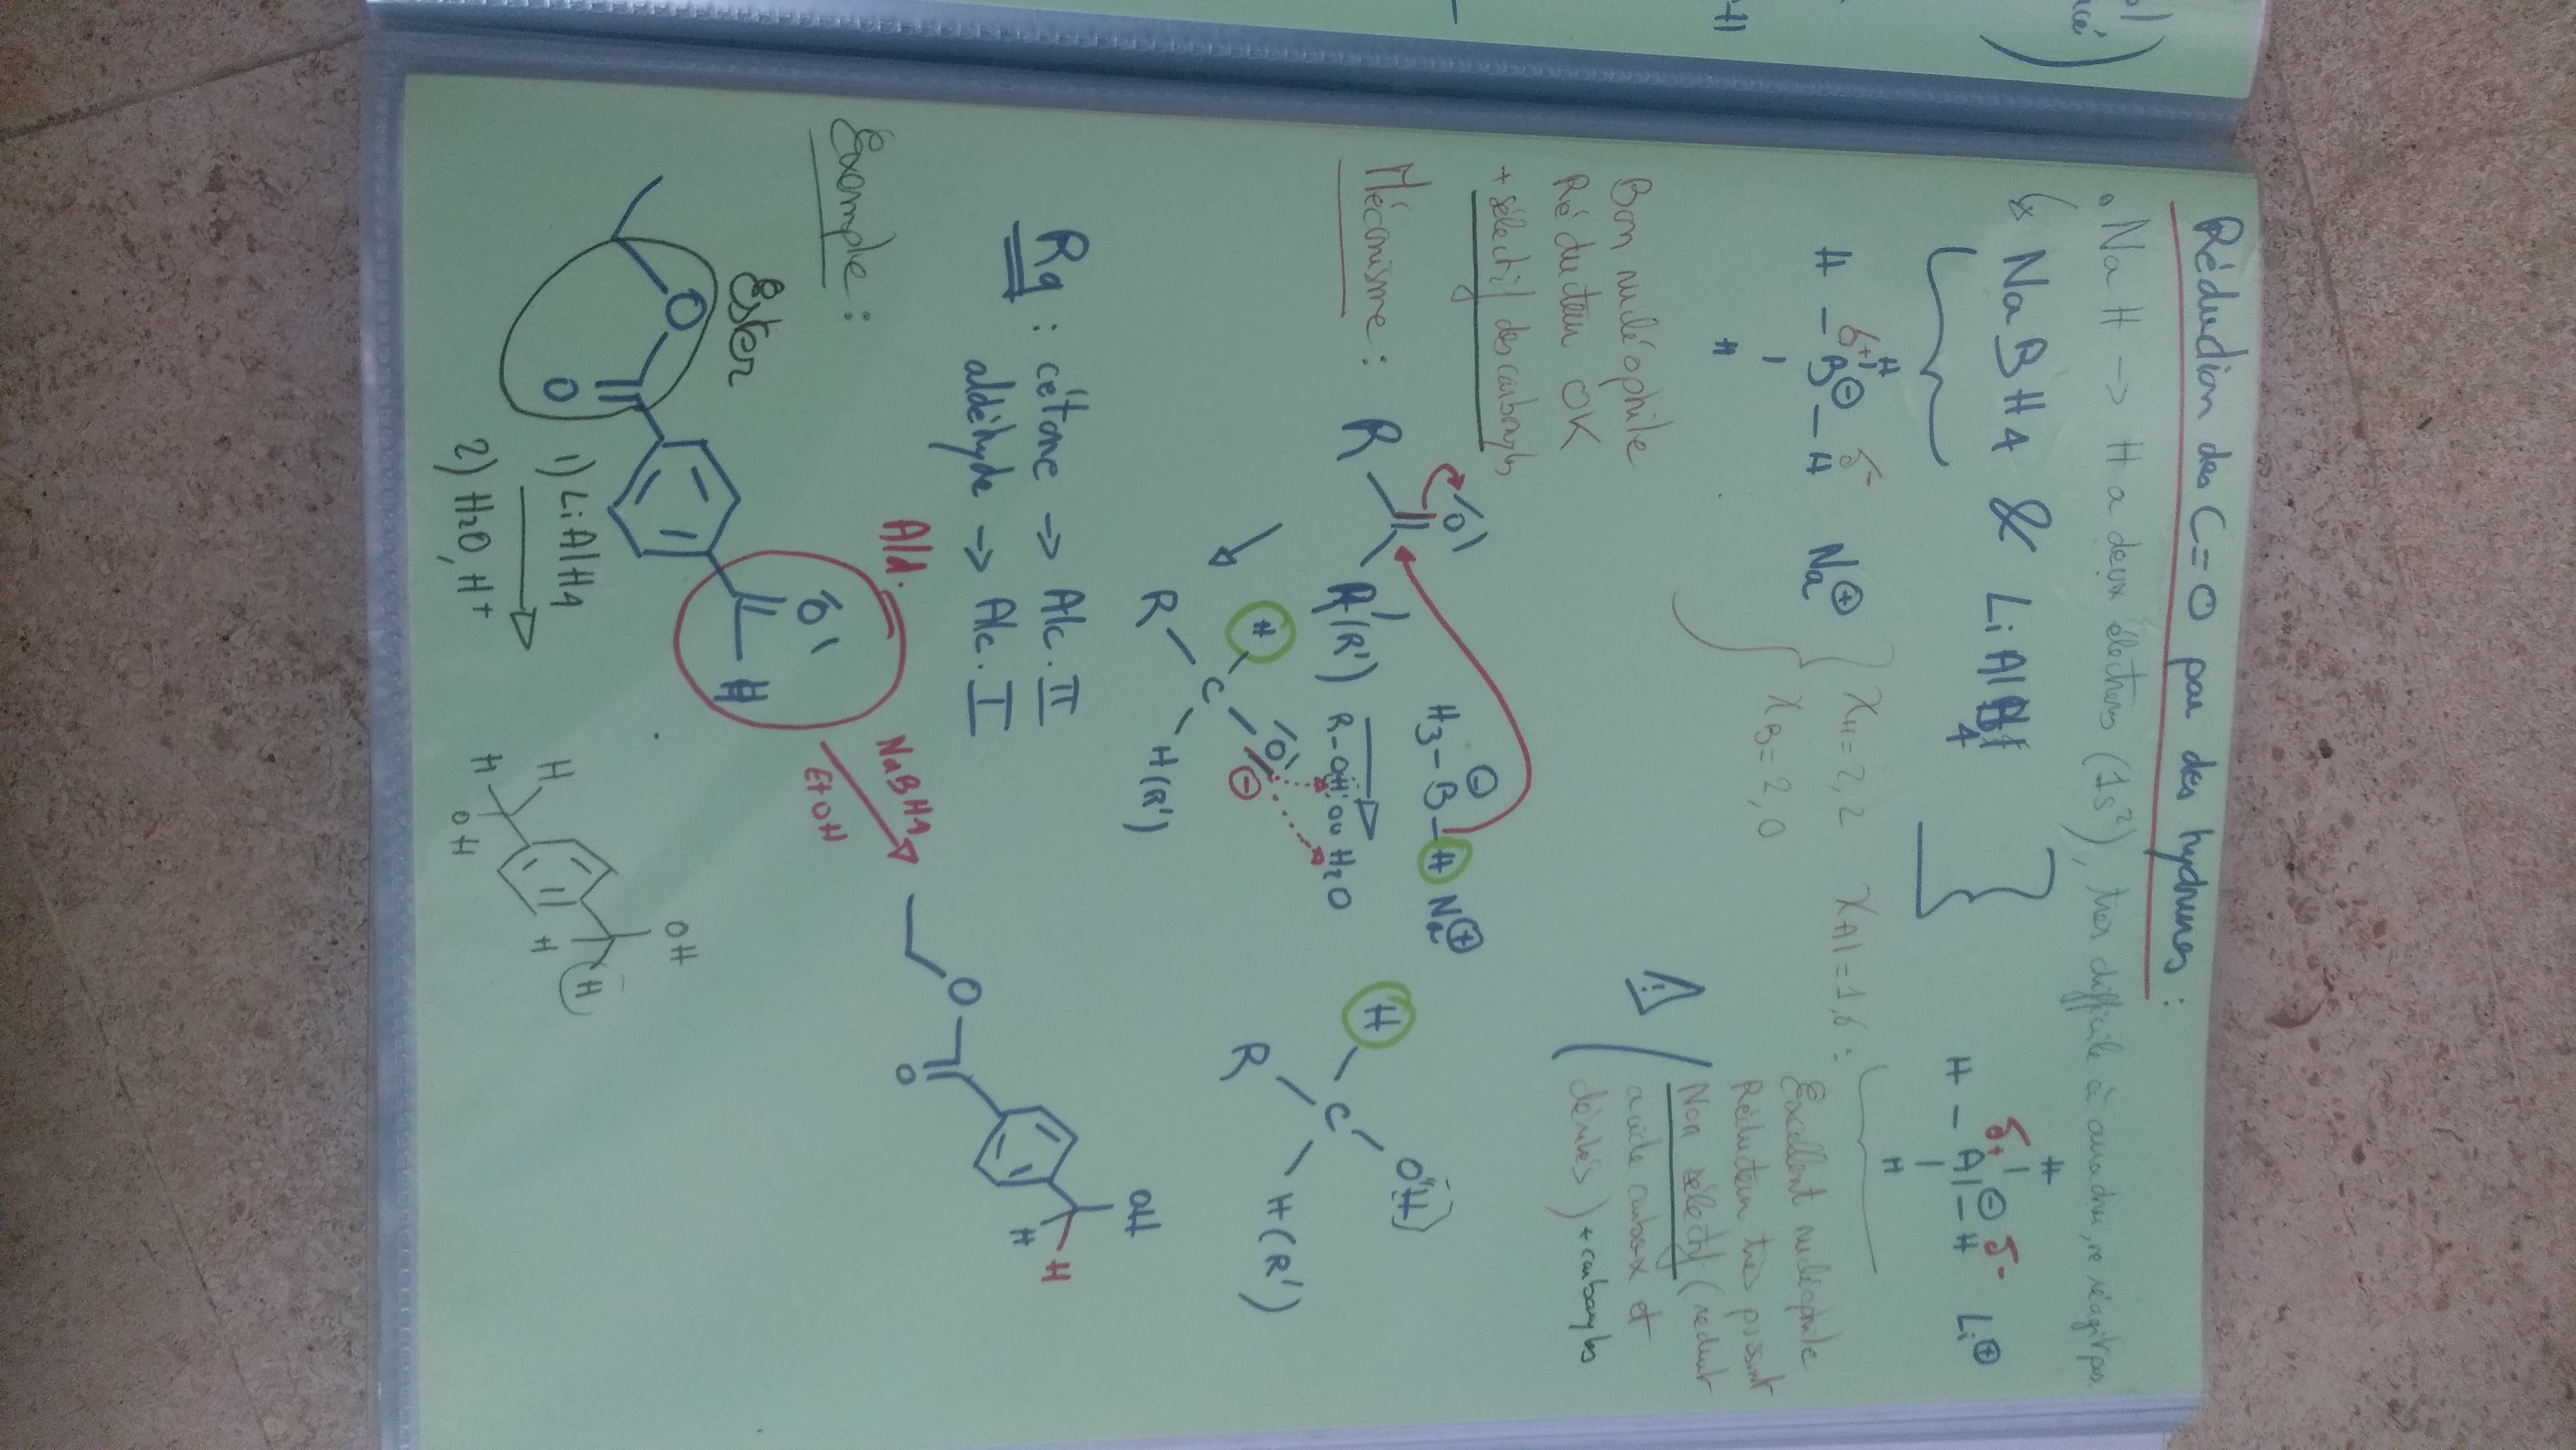 Réduction des C=O par des hydrures :
• NaH → H a deux électrons (1s²), très difficile à arracher, ne réagit pas.
↳ NaBH4 & LiAlH4
H - B⊖ - H Na⊕
δ+ δ-
H
H
H - Al⊖ - H Li⊕
δ+ δ-
H
H
χH = 2,2 χAl = 1,6 :
χB = 2,0
Bon nucléophile
Réducteur OK
+ sélectif des carbonyles
Excellent nucléophile
Réducteur très puissant
Non sélectif (réduit
acide carbox et
dérivés) + carbonyles
Mécanisme :
R O R'(R') H3-B⊖-H Na⊕
R-OH ou H2O
H
R C O ⊖
H(R')
H
R C OH
H(R')
Rq : cétone → Alc. II
aldéhyde → Alc. I
Exemple :
Ester
O
O
Ald.
O
H
NaBH4
EtOH
O
O
OH
H
H
1) LiAlH4
2) H2O, H+
H
H
OH
OH
H
H